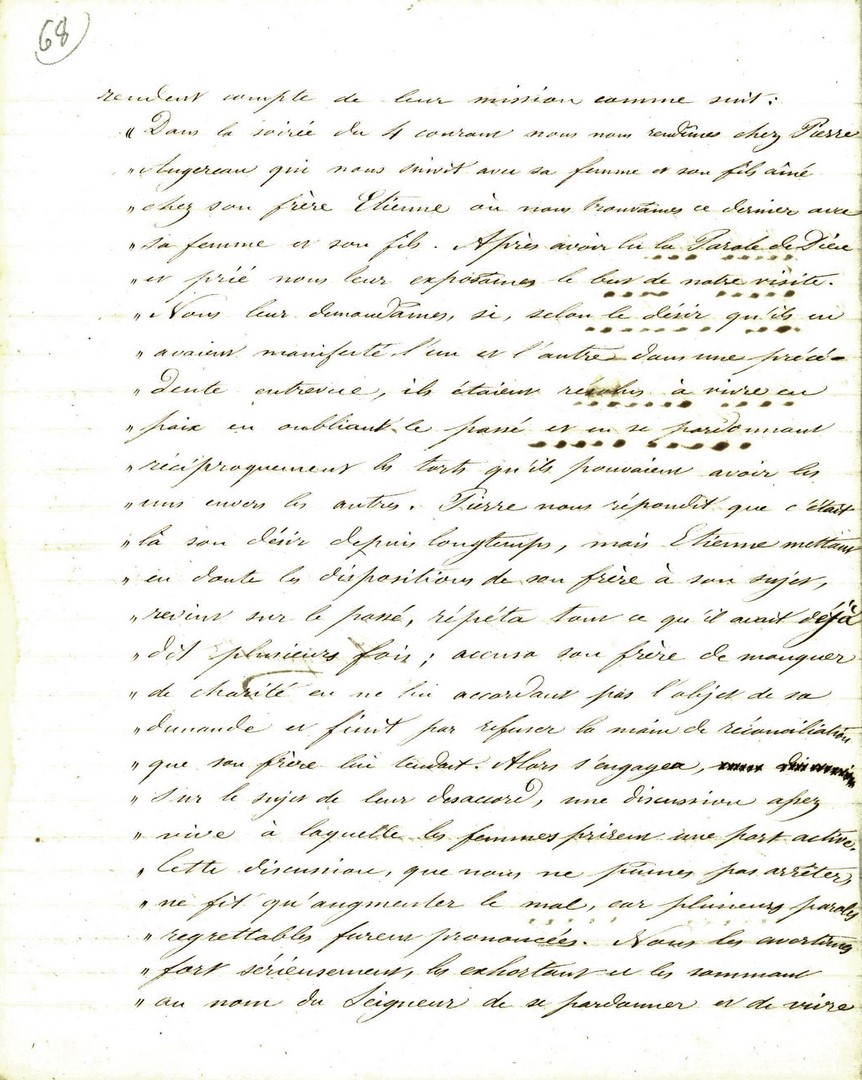 68
rendent compte de leur mission comme suit:
" Dans la soirée du 4 courant nous nous rendîmes chez Pierre
" Angereau qui nous suivit avec sa femme et son fils aîné
" chez son frère Etienne où nous trouvâmes ce dernier avec
" sa femme et son fils. Après avoir lu la Parole de Dieu
" et prié nous leur exposâmes le but de notre visite.
" Nous leur demandâmes, si, selon le désir qu'ils en
" avaient manifesté l'un et l'autre dans une précé-
" dente entrevue, ils étaient résolus à vivre en
" paix en oubliant le passé et en se pardonnant
" réciproquement les torts qu'ils pouvaient avoir les
" uns envers les autres. Pierre nous répondit que c'était
" là son désir depuis longtemps, mais Etienne mettant
" en doute les dispositions de son frère à son sujet,
" revint sur le passé, répéta tout ce qu'il avait déjà
" dit plusieurs fois; accusa son frère de manquer
" de charité en ne lui accordant pas l'objet de sa
" demande et finit par refuser la main de réconciliation
" que son frère lui tendait. Alors s'engagea,
" sur le sujet de leur désaccord, une discussion assez
" vive à laquelle les femmes prirent une part active.
" Cette discussion, que nous ne pûmes pas arrêter,
" ne fit qu'augmenter le mal, car plusieurs paroles
" regrettables furent prononcées. Nous les avertîmes
" fort sérieusement, les exhortant et les sommant
" au nom du Seigneur de se pardonner et de vivre